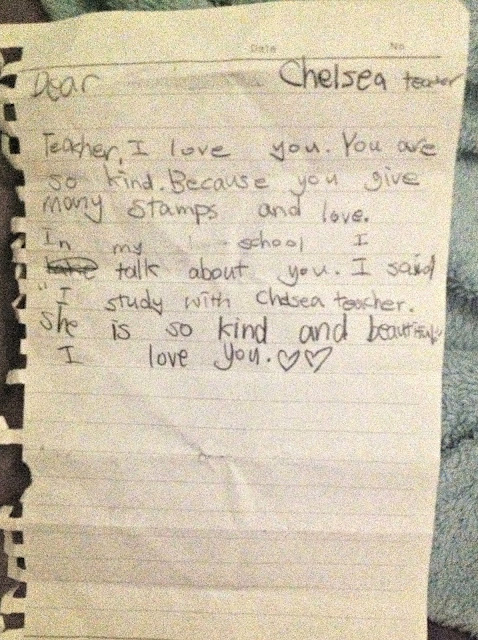 Date No.
Dear Chelsea teacher
Teacher, I love you. You are
so kind. Because you give
many stamps and love.
In my school I
talk about you. I said
"I study with Chelsea teacher.
She is so kind and beautiful
I love you. ♡♡